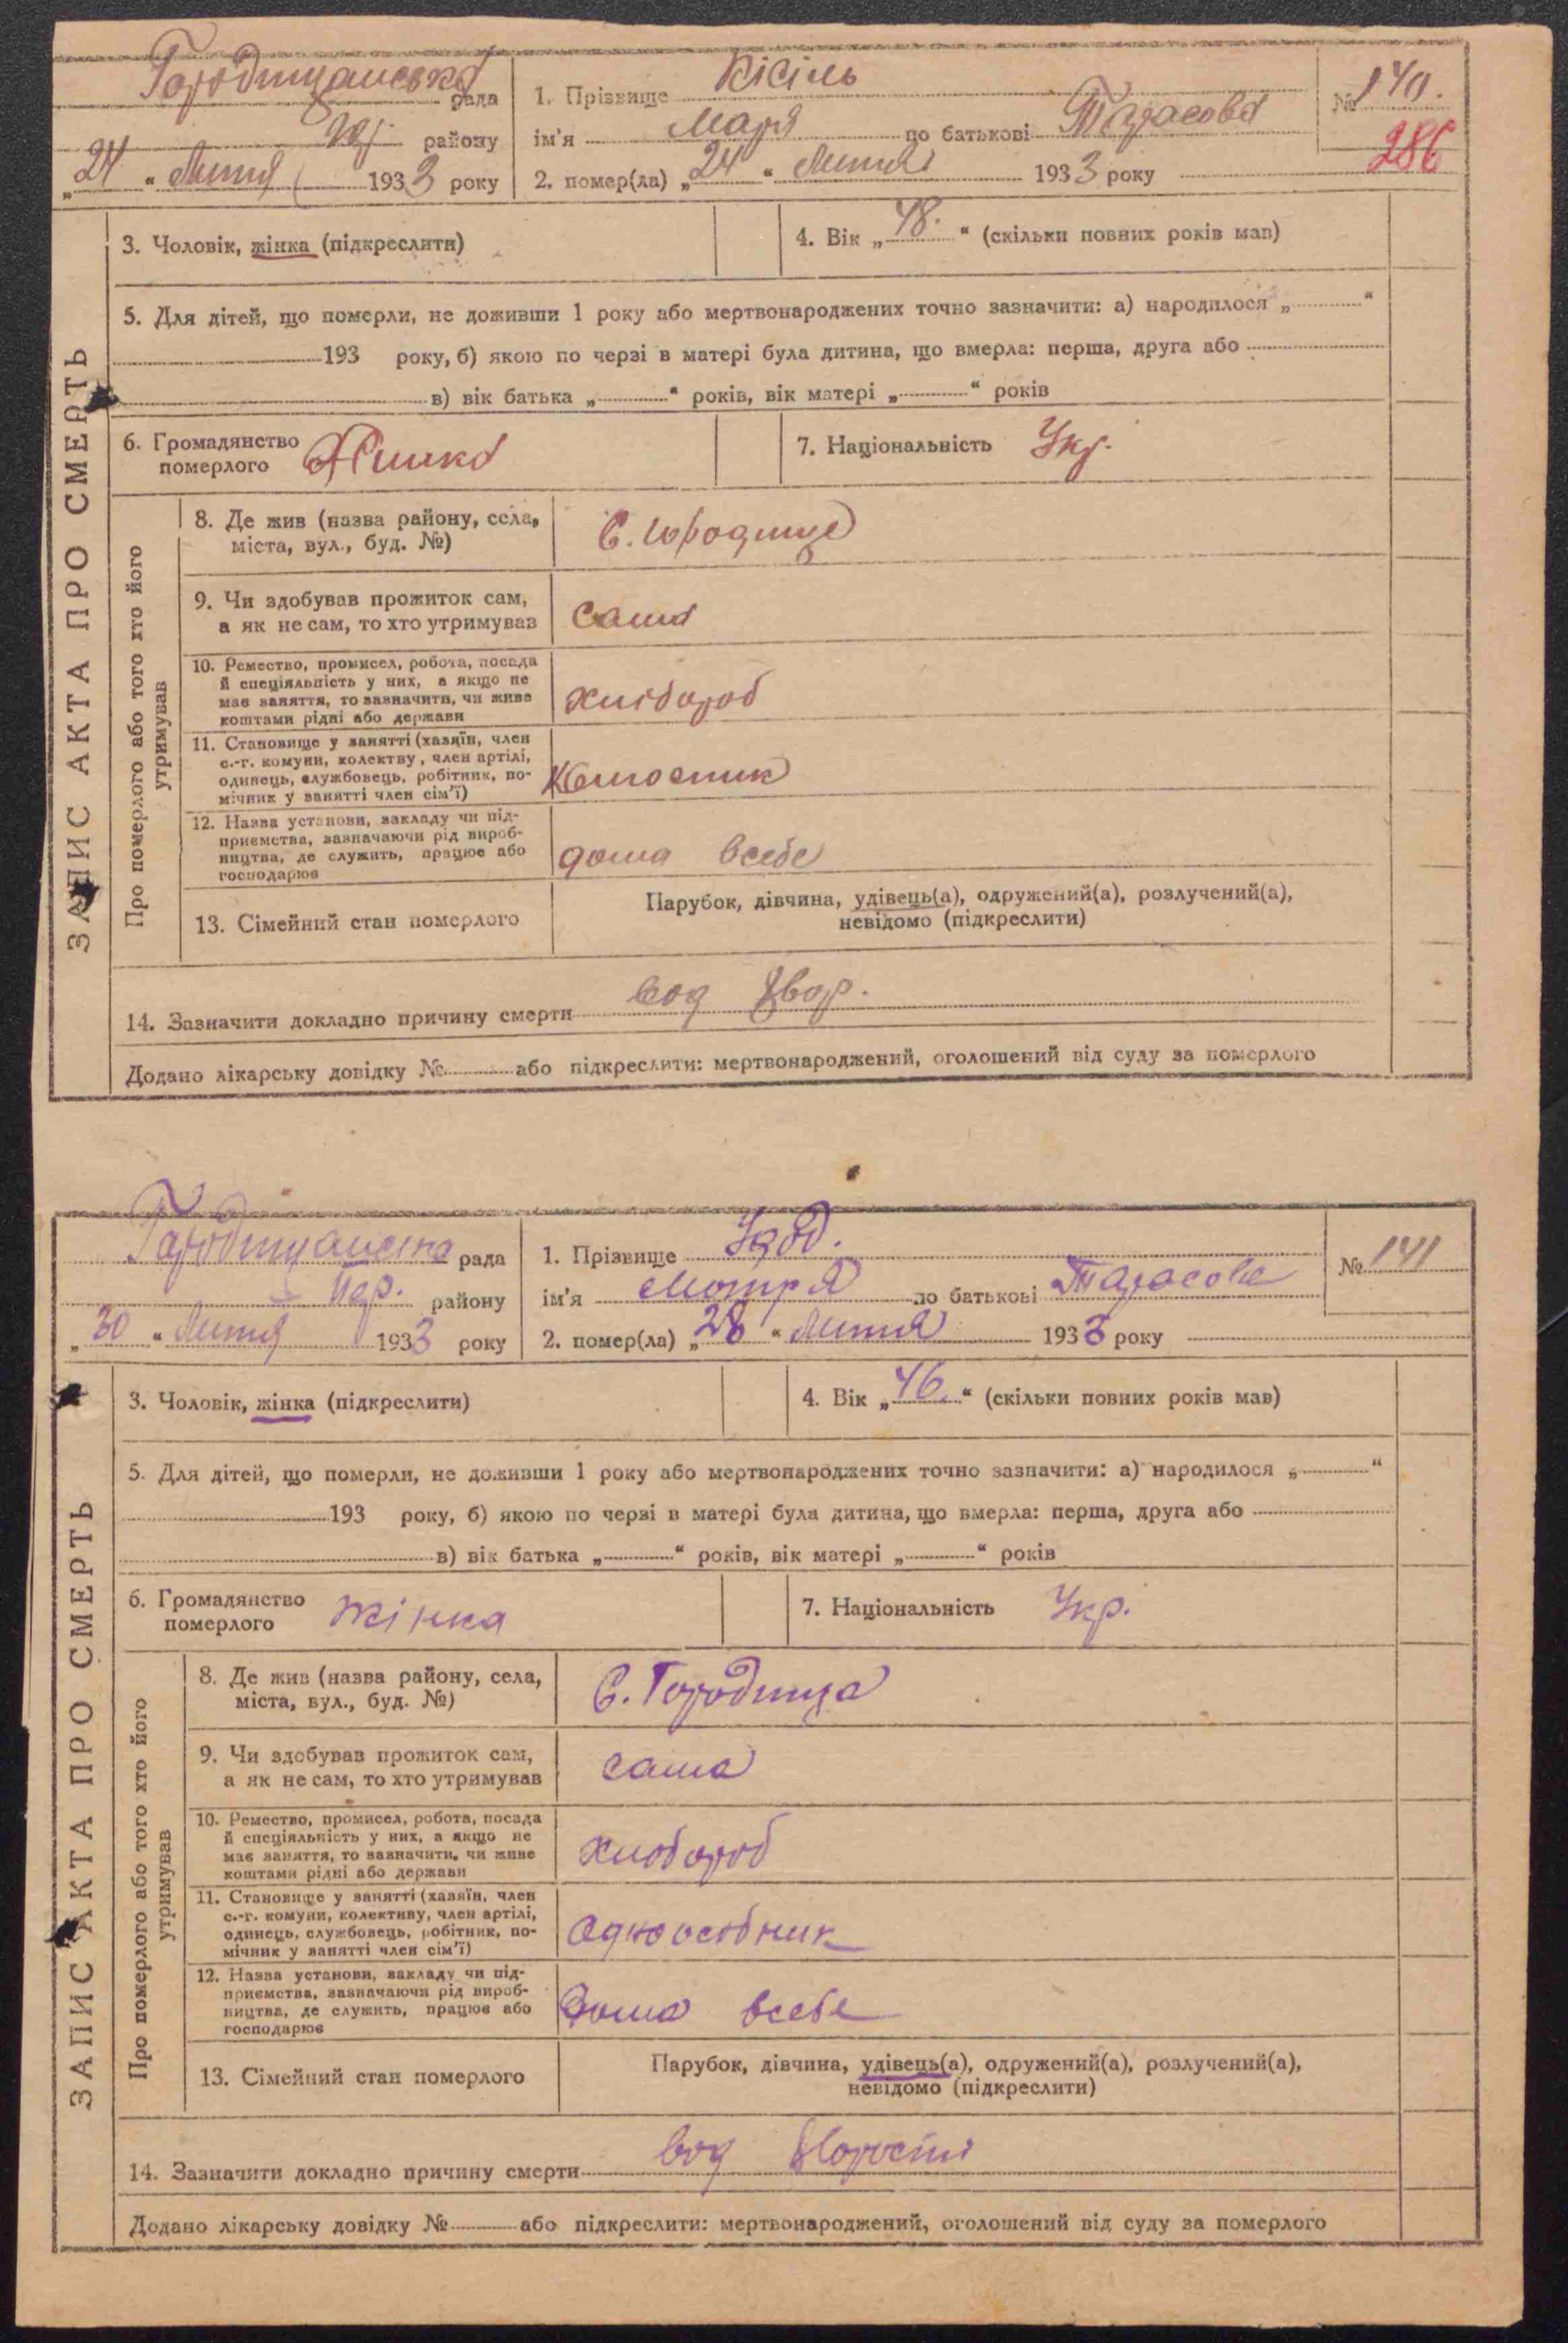 Городищанська рада
району
„24“ Липня 1933 року
1. Прізвище Кісіль
ім'я Маря по батькові Тарасова
2. помер(ла) „24“ Липня 1933 року
№ 140.
286
ЗАПИС АКТА ПРО СМЕРТЬ
3. Чоловік, жінка (підкреслити)
4. Вік „48.“ (скільки повних років мав)
5. Для дітей, що померли, не доживши 1 року або мертвонароджених точно зазначити: а) народилося „ “
193 року, б) якою по черзі в матері була дитина, що вмерла: перша, друга або
в) вік батька „ “ років, вік матері „ “ років
6. Громадянство
померлого Жінка
7. Національність Укр.
Про померлого або того хто його
утримував
8. Де жив (назва району, села,
міста, вул., буд. №)
С. Городище
9. Чи здобував прожиток сам,
а як не сам, то хто утримував
сама
10. Ремество, промисел, робота, посада
й спеціяльність у них, а якщо не
має заняття, то зазначити, чи живе
коштами рідні або держави
хлібороб
11. Становище у занятті (хазяїн, член
с.-г. комуни, колективу, член артілі,
одинець, службовець, робітник, по-
мічник у занятті член сім'ї)
12. Назва установи, закладу чи під-
приємства, зазначаючи рід вироб-
ництва, де служить, працює або
господарює
дома всебе
13. Сімейний стан померлого
Парубок, дівчина, удівець(а), одружений(а), розлучений(а),
невідомо (підкреслити)
14. Зазначити докладно причину смерти вод хвор.
Додано лікарську довідку № або підкреслити: мертвонароджений, оголошений від суду за померлого
Городищанська рада
району
„30“ Липня 1933 року
1. Прізвище
ім'я Мотря по батькові Тарасова
2. помер(ла) „28“ Липня 1933 року
№ 141
ЗАПИС АКТА ПРО СМЕРТЬ
3. Чоловік, жінка (підкреслити)
4. Вік „46.“ (скільки повних років мав)
5. Для дітей, що померли, не доживши 1 року або мертвонароджених точно зазначити: а) народилося „ “
193 року, б) якою по черзі в матері була дитина, що вмерла: перша, друга або
в) вік батька „ “ років, вік матері „ “ років
6. Громадянство
померлого Жінка
7. Національність Укр.
Про померлого або того хто його
утримував
8. Де жив (назва району, села,
міста, вул., буд. №)
С. Городища
9. Чи здобував прожиток сам,
а як не сам, то хто утримував
сама
10. Ремество, промисел, робота, посада
й спеціяльність у них, а якщо не
має заняття, то зазначити, чи живе
коштами рідні або держави
хлібороб
11. Становище у занятті (хазяїн, член
с.-г. комуни, колективу, член артілі,
одинець, службовець, робітник, по-
мічник у занятті член сім'ї)
одноособник
12. Назва установи, закладу чи під-
приємства, зазначаючи рід вироб-
ництва, де служить, працює або
господарює
дома всебе
13. Сімейний стан померлого
Парубок, дівчина, удівець(а), одружений(а), розлучений(а),
невідомо (підкреслити)
14. Зазначити докладно причину смерти вод хворости
Додано лікарську довідку № або підкреслити: мертвонароджений, оголошений від суду за померлого